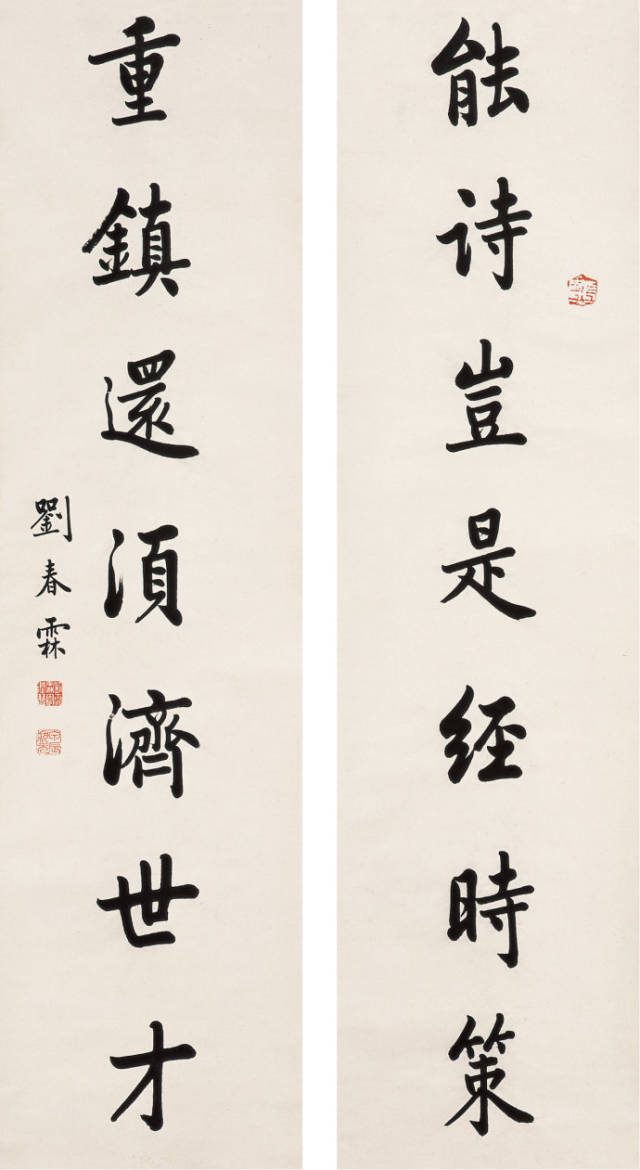 能詩豈是經時策
重鎮還須濟世才
劉春霖